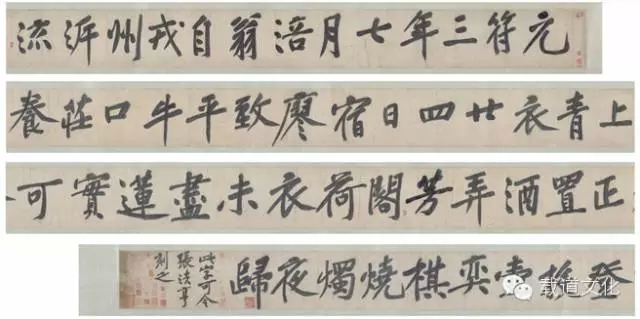 元符三年七月涪翁自戎州泝流
上青衣廿四日宿廖致平牛口莊養
正置酒弄芳閣荷衣未盡蓮實可
登投壺弈棋燒燭夜歸
此字可令
張法亨
刻之
载道文化